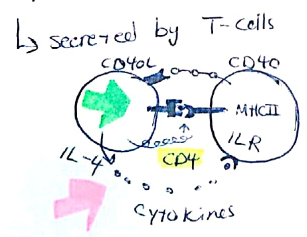 ↳ secreted by T-cells
CD40L CD40
MHCII
ILR
IL-4 CD4
Cytokines